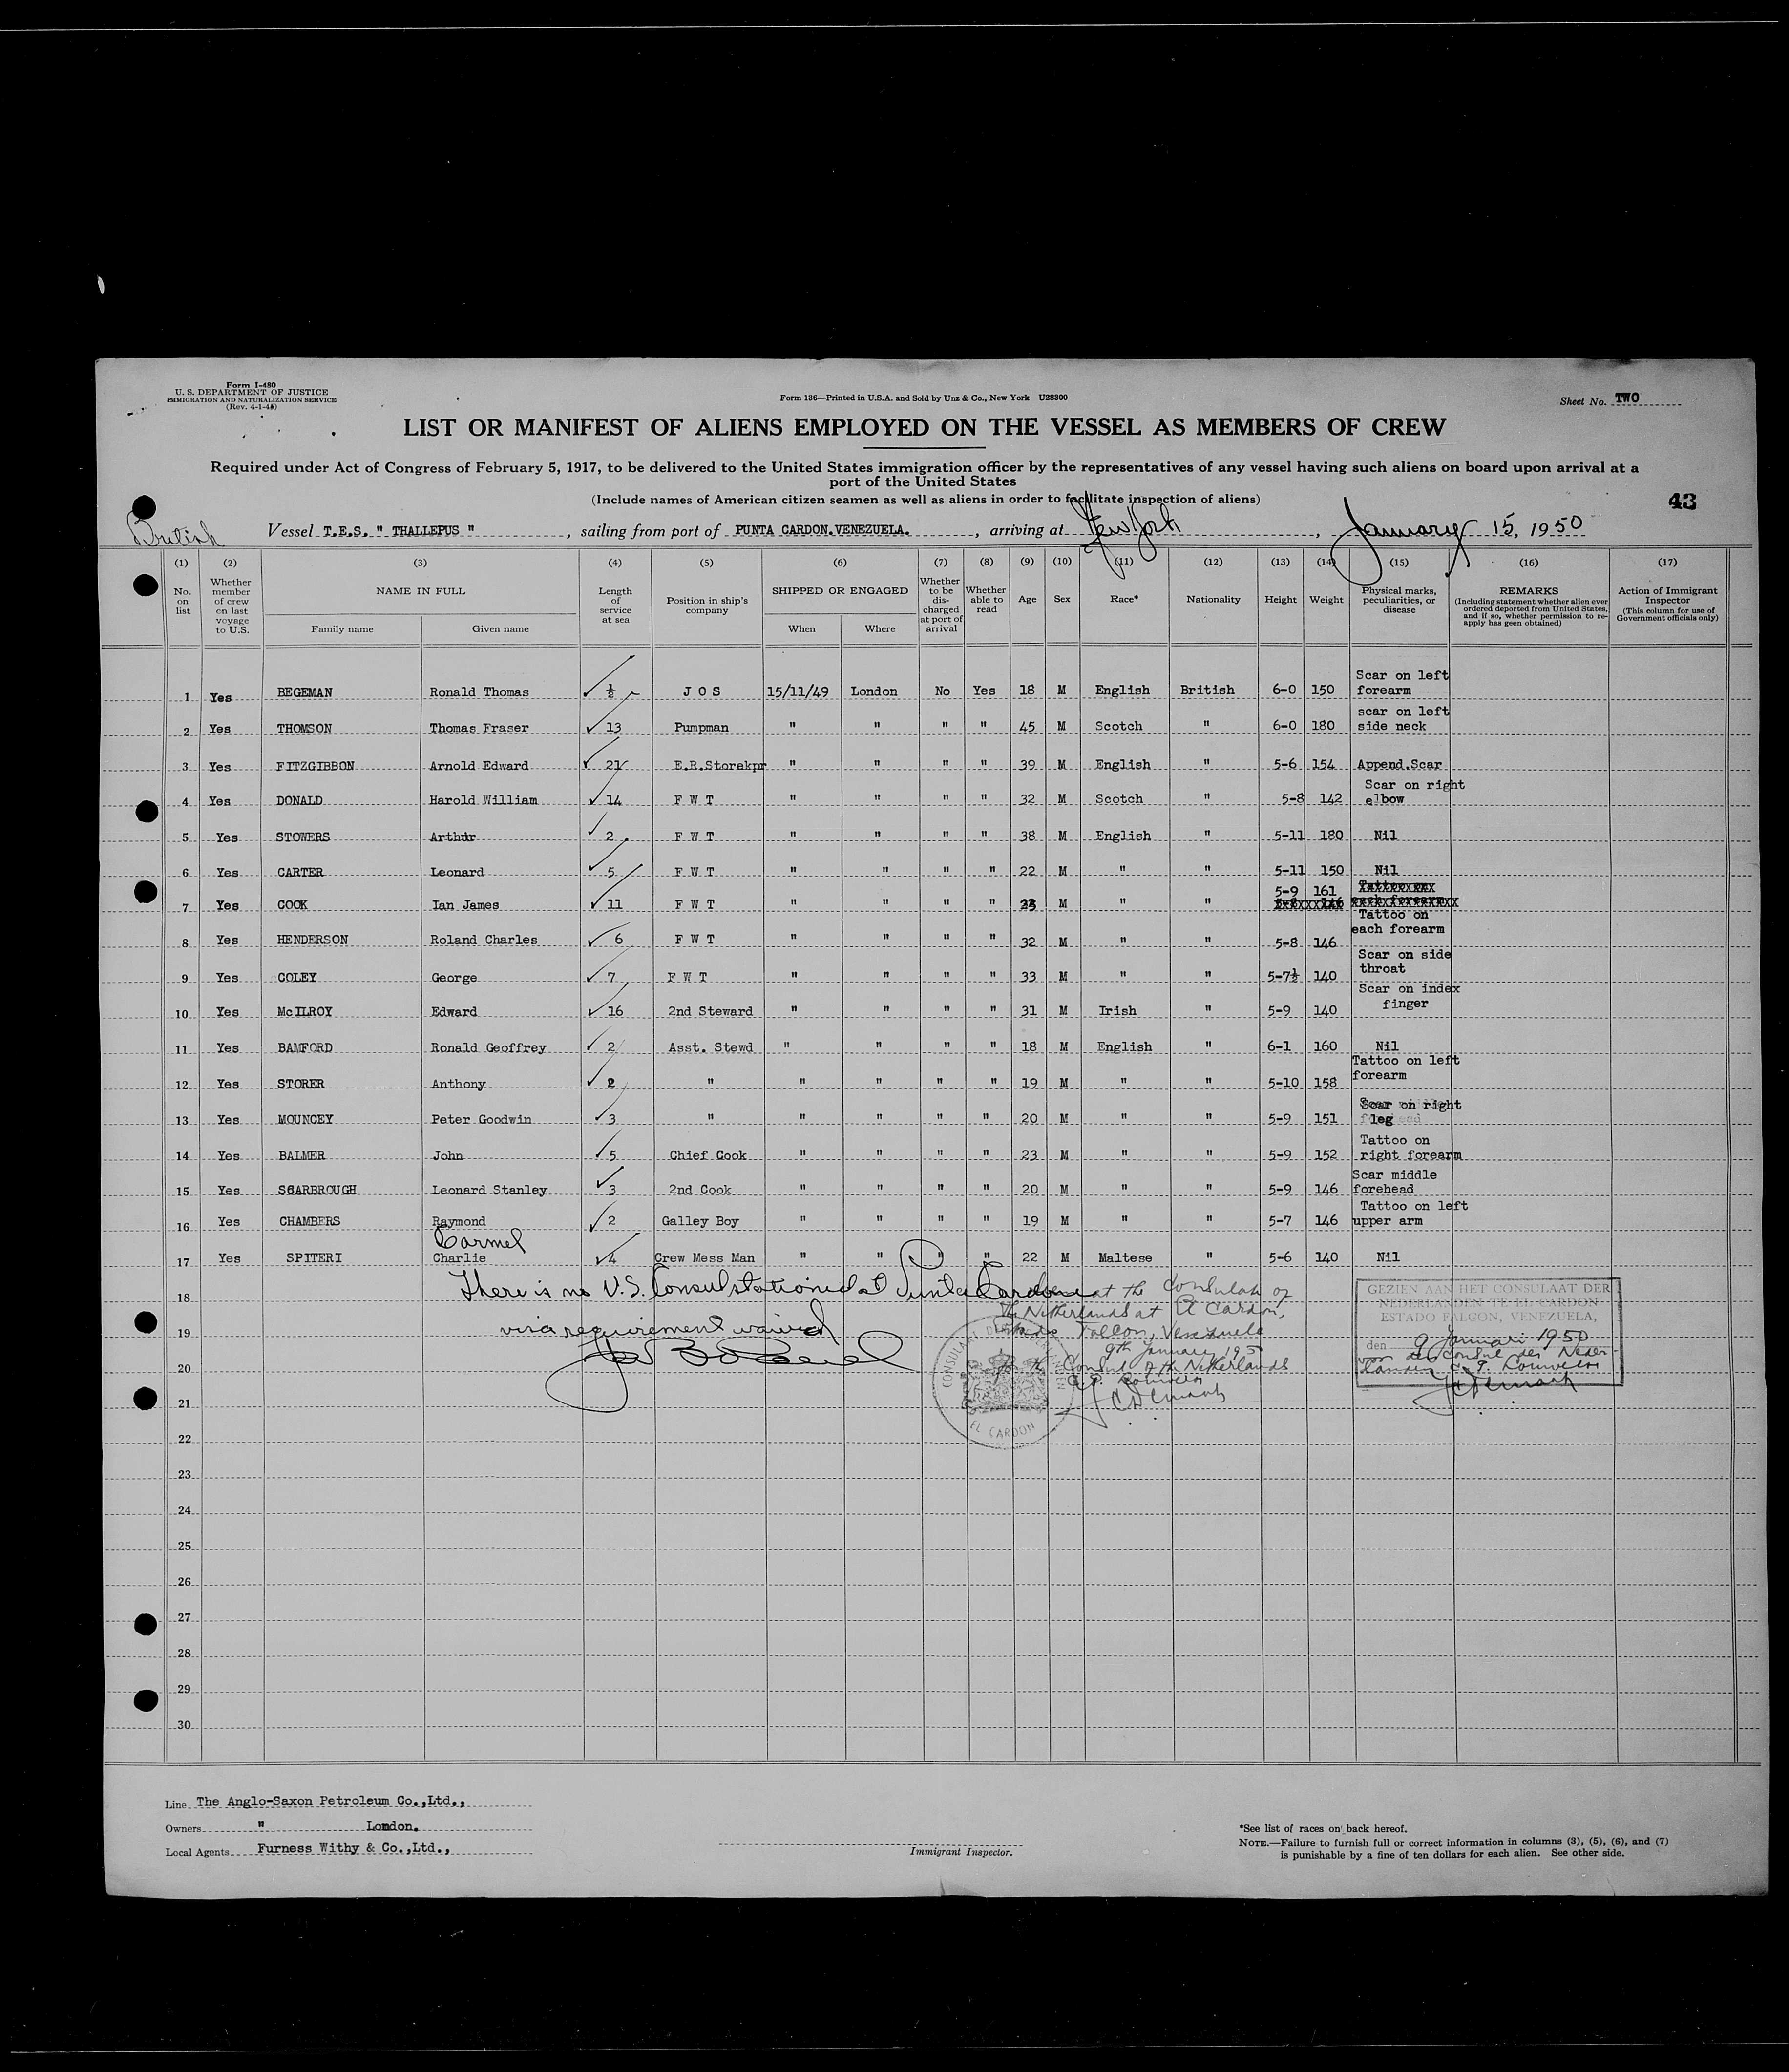 Form I-480
U. S. DEPARTMENT OF JUSTICE
IMMIGRATION AND NATURALIZATION SERVICE
(Rev. 4-1-48)
Form 136—Printed in U.S.A. and Sold by Unz & Co., New York U28300
Sheet No. TWO
LIST OR MANIFEST OF ALIENS EMPLOYED ON THE VESSEL AS MEMBERS OF CREW
Required under Act of Congress of February 5, 1917, to be delivered to the United States immigration officer by the representatives of any vessel having such aliens on board upon arrival at a
port of the United States
(Include names of American citizen seamen as well as aliens in order to facilitate inspection of aliens)
43
British Vessel T.E.S. " THALLEPUS " , sailing from port of PUNTA CARDON.VENEZUELA. , arriving at New York , January 15, 1950
(1) No. on list
(2) Whether member of crew on last voyage to U.S.
(3) NAME IN FULL Family name Given name
(4) Length of service at sea
(5) Position in ship's company
(6) SHIPPED OR ENGAGED When Where
(7) Whether to be dis-charged at port of arrival
(8) Whether able to read
(9) Age
(10) Sex
(11) Race*
(12) Nationality
(13) Height
(14) Weight
(15) Physical marks, peculiarities, or disease
(16) REMARKS (Including statement whether alien ever ordered deported from United States, and if so, whether permission to re-apply has geen obtained)
(17) Action of Immigrant Inspector (This column for use of Government officials only)
1 Yes BEGEMAN Ronald Thomas ½ J O S 15/11/49 London No Yes 18 M English British 6-0 150 Scar on left forearm
2 Yes THOMSON Thomas Fraser 13 Pumpman " " " " 45 M Scotch " 6-0 180 scar on left side neck
3 Yes FITZGIBBON Arnold Edward 21 E.R.Storekpr " " " " 39 M English " 5-6 154 Append.Scar
4 Yes DONALD Harold William 14 F W T " " " " 32 M Scotch " 5-8 142 Scar on right elbow
5 Yes STOWERS Arthur 2 F W T " " " " 38 M English " 5-11 180 Nil
6 Yes CARTER Leonard 5 F W T " " " " 22 M " " 5-11 150 Nil
7 Yes COOK Ian James 11 F W T " " " " M " " 5-9 161
8 Yes HENDERSON Roland Charles 6 F W T " " " " 32 M " " 5-8 146 Tattoo on each forearm
9 Yes COLEY George 7 F W T " " " " 33 M " " 5-7½ 140 Scar on side throat
10 Yes McILROY Edward 16 2nd Steward " " " " 31 M Irish " 5-9 140 Scar on index finger
11 Yes BAMFORD Ronald Geoffrey 2 Asst. Stewd " " " " 18 M English " 6-1 160 Nil
12 Yes STORER Anthony 2 " " " " " 19 M " " 5-10 158 Tattoo on left forearm
13 Yes MOUNCEY Peter Goodwin 3 " " " " " 20 M " " 5-9 151 Scar on right leg
14 Yes BALMER John 5 Chief Cook " " " " 23 M " " 5-9 152 Tattoo on right forearm
15 Yes SCARBROUGH Leonard Stanley 3 2nd Cook " " " " 20 M " " 5-9 146 Scar middle forehead
16 Yes CHAMBERS Raymond 2 Galley Boy " " " " 19 M " " 5-7 146 Tattoo on left upper arm
Carmel
17 Yes SPITERI Charlie 4 Crew Mess Man " " " " 22 M Maltese " 5-6 140 Nil
18
There is no U.S. Consul stationed at Punta Cardon
19
visa requirement waived
20
21
22
23
24
25
26
27
28
29
30
at the Consulate of
the Netherlands at El Cardon,
Falcon, Venezuela
9th January 1950
the Consul of the Netherlands
EL CARDON
GEZIEN AAN HET CONSULAAT DER
NEDERLANDEN TE EL CARDON
ESTADO FALCON, VENEZUELA,
den 9 Januari 1950
Line The Anglo-Saxon Petroleum Co.,Ltd.,
Owners " London.
Local Agents Furness Withy & Co.,Ltd.,
Immigrant Inspector.
*See list of races on back hereof.
NOTE.—Failure to furnish full or correct information in columns (3), (5), (6), and (7)
is punishable by a fine of ten dollars for each alien. See other side.